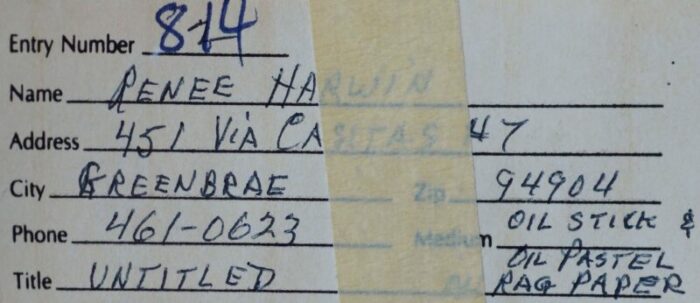 Entry Number 8-14
Name RENEE HARWIN
Address 451 VIA CASITAS #7
City GREENBRAE Zip 94904
Phone 461-0623 Medium OIL STICK &
OIL PASTEL
Title UNTITLED ON RAG PAPER